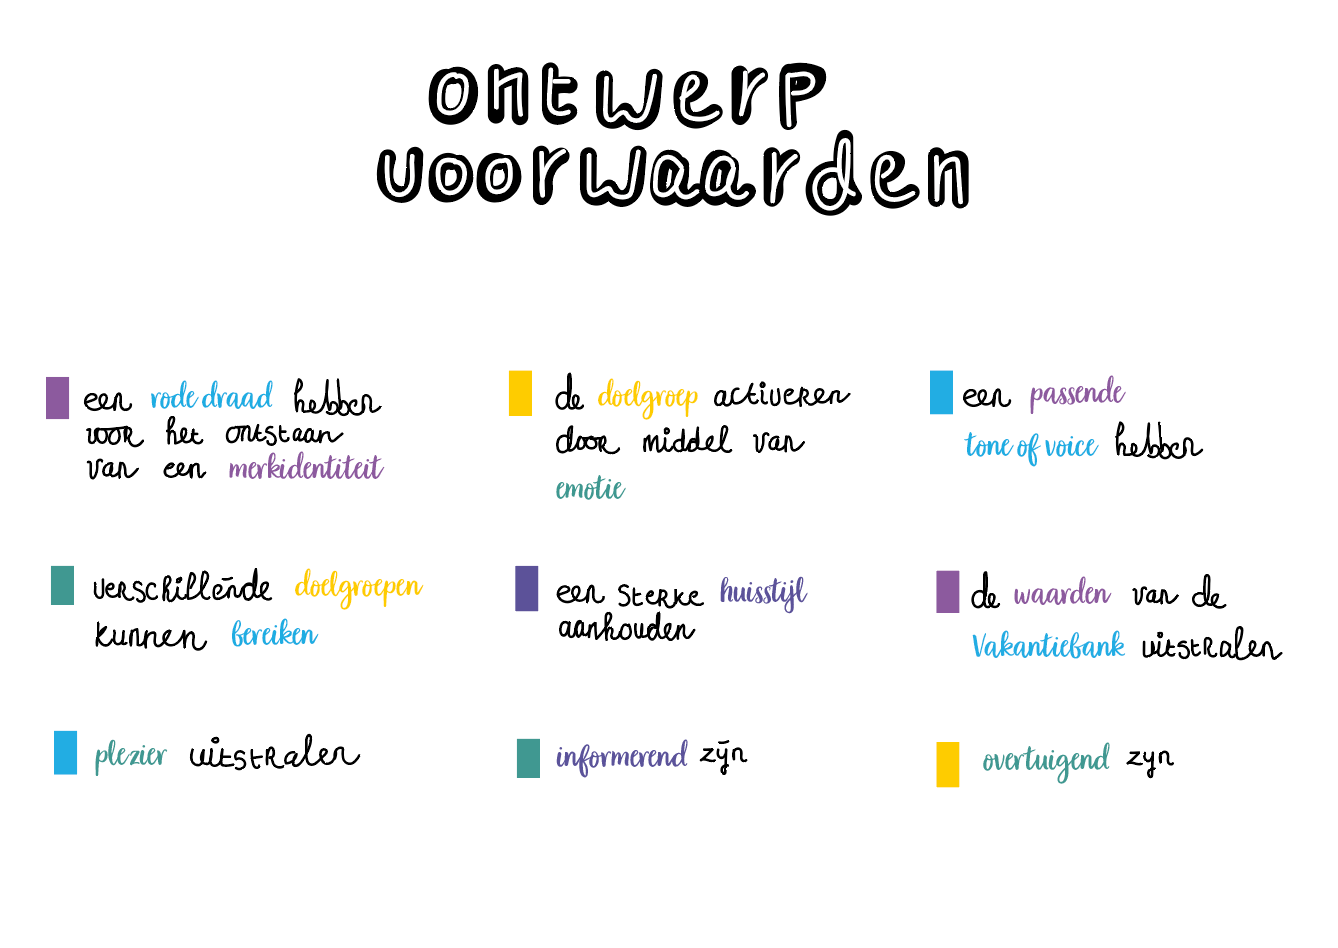 ontwerp
voorwaarden
een rode draad hebben
voor het ontstaan
van een merkidentiteit
de doelgroep activeren
door middel van
emotie
een passende
tone of voice hebben
verschillende doelgroepen
kunnen bereiken
een sterke huisstijl
aanhouden
de waarden van de
Vakantiebank uitstralen
plezier uitstralen
informerend zijn
overtuigend zyn